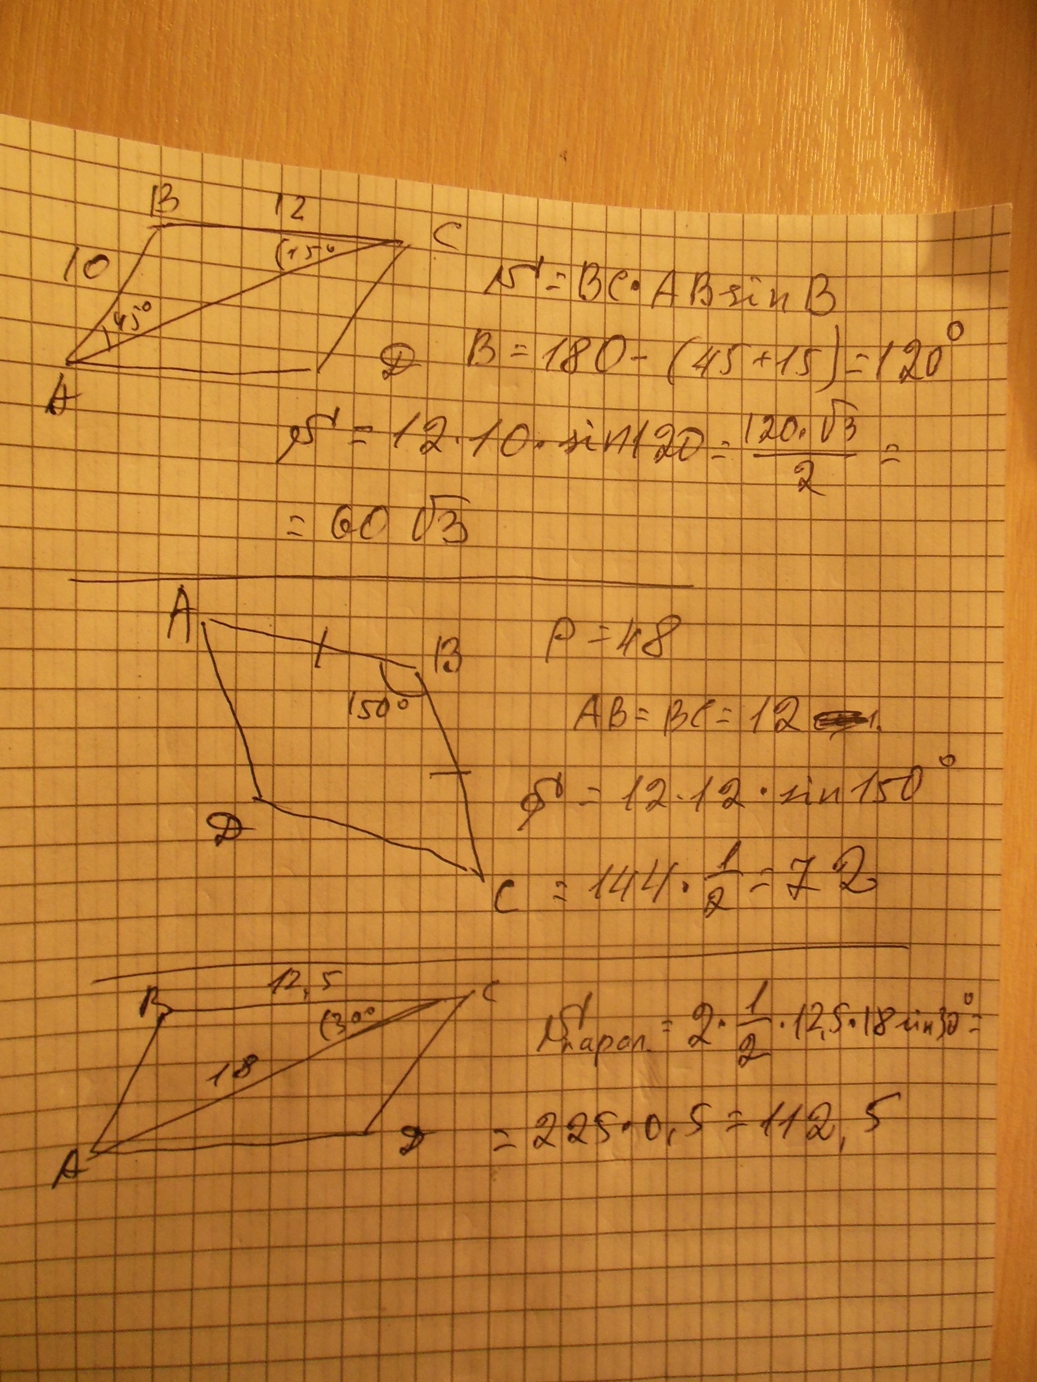 B 12 C
10 15°
45°
A D
S = BC · AB sin B
B = 180 - (45 + 15) = 120°
S = 12 · 10 · sin 120 = 120 · √3 / 2 =
= 60 √3
A B
150°
D C
P = 48
AB = BC = 12
S = 12 · 12 · sin 150°
= 144 · 1/2 = 72
B 12,5 C
30°
18
A D
S парал. = 2 · 1/2 · 12,5 · 18 sin 30° =
= 225 · 0,5 = 112,5